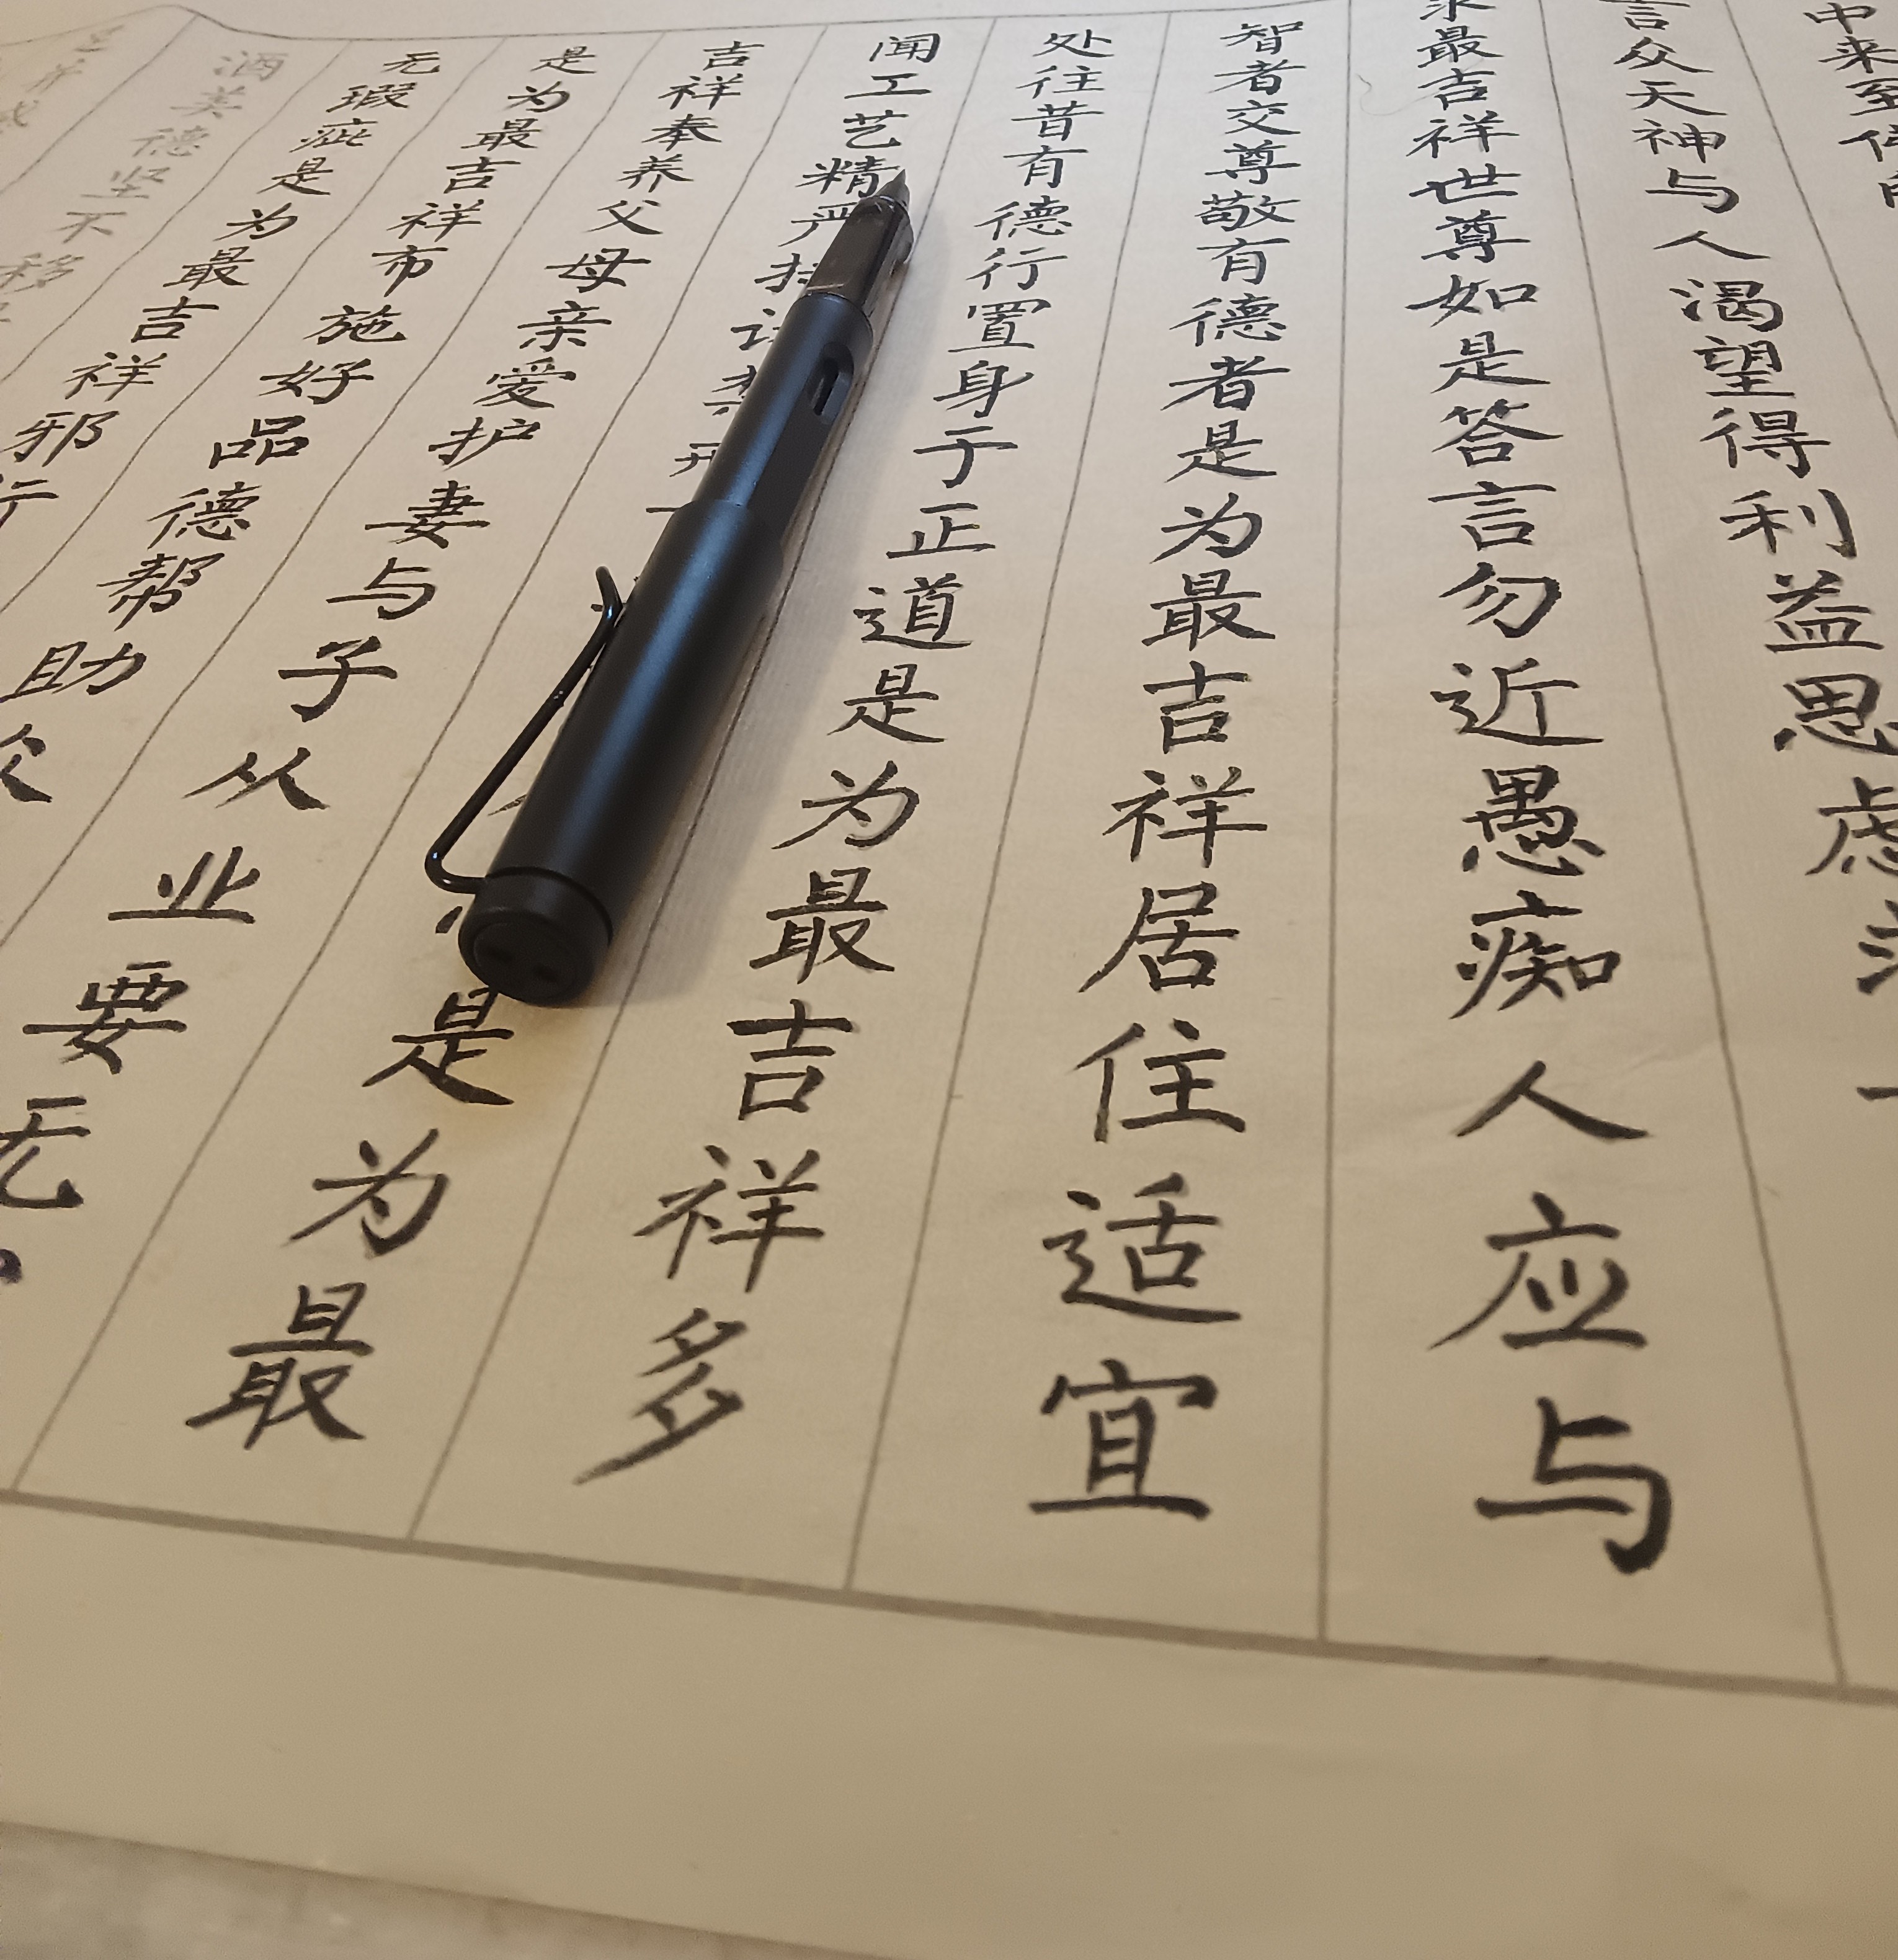 中来至
言众天神与人渴望得利益思虑
最吉祥世尊如是答言勿近愚痴人应与
智者交尊敬有德者是为最吉祥居住适宜
处往昔有德行置身于正道是为最吉祥多
闻工艺精严
是为最
吉祥奉养父母亲爱护妻与子从业要无
是为最吉祥布施好品德帮助众
无瑕疵是为最吉祥邪行
酒美德坚不移